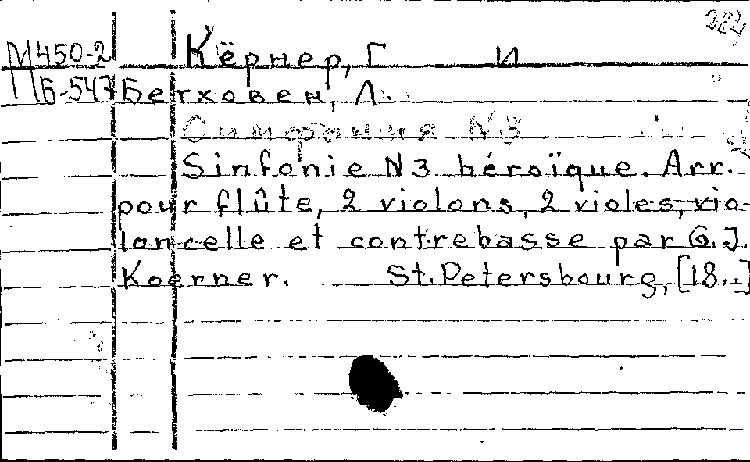 284
М450-2 Кёрнер, Г И
Пб-547 Бетховен, Л.
Симфония N3
Sinfonie N3 héroïque. Arr.
pour flûte, 2 violons, 2 violes, vio-
loncelle et contrebasse par G. J.
Koerner. St. Petersbourg, [18..]